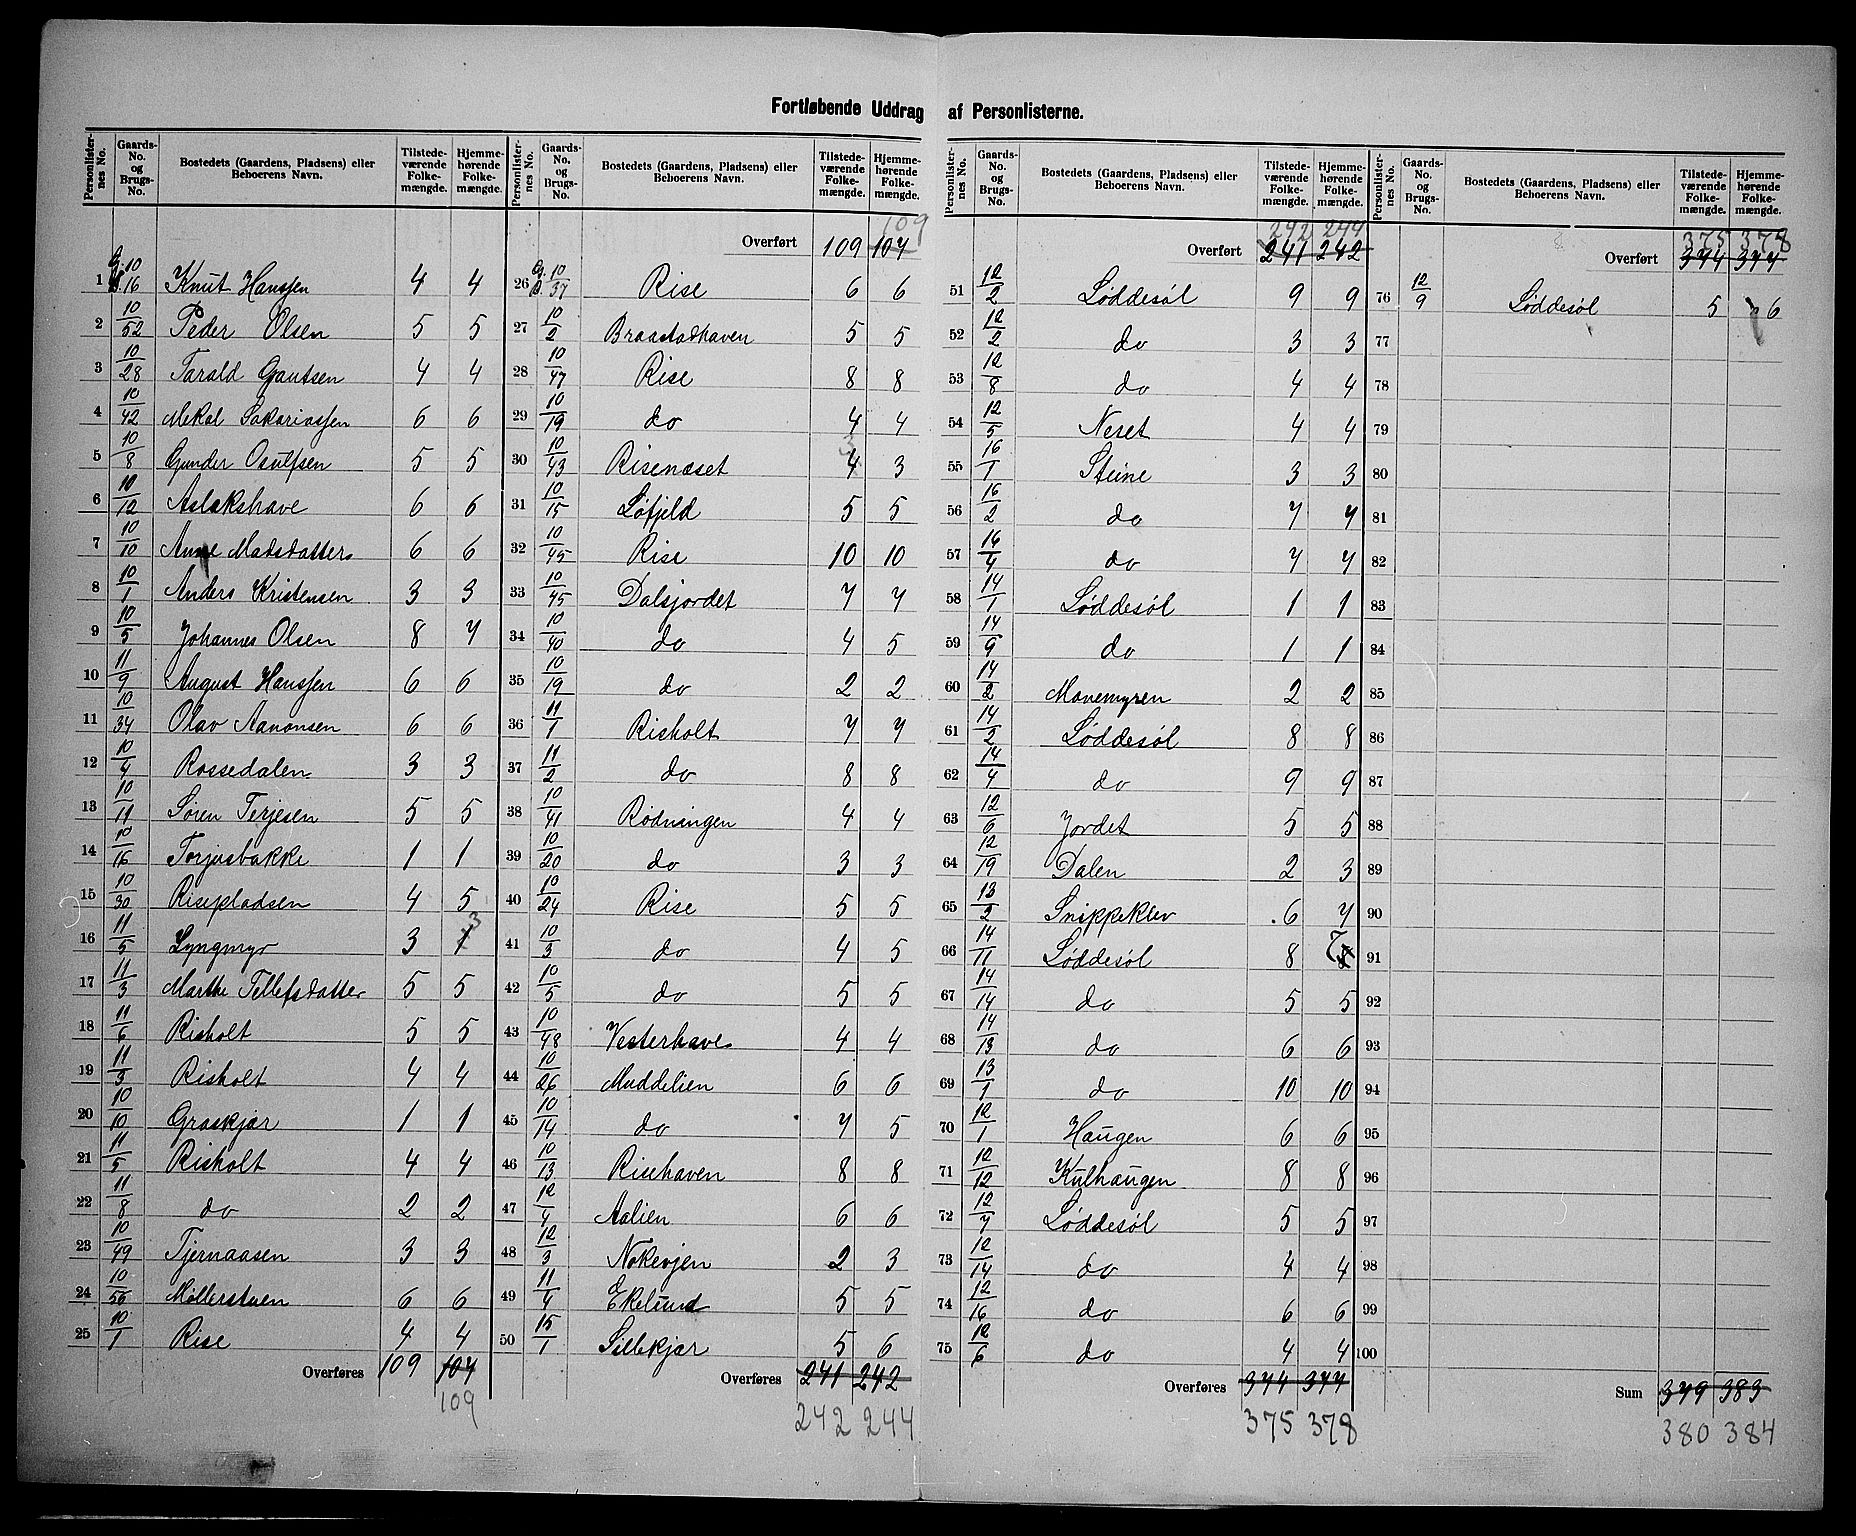 Fortløbende Uddrag af Personlisterne.
Personlisternes No. | Gaards-No. og Brugs-No. | Bostedets (Gaardens, Pladsens) eller Beboerens Navn. | Tilstedeværende Folkemængde. | Hjemmehørende Folkemængde.
1 | G. 10 / B. 16 | Knut Hanssen | 4 | 4
2 | 10/52 | Peder Olsen | 5 | 5
3 | 10/28 | Tarald Gautsen | 4 | 4
4 | 10/42 | Mekal Sakariassen | 6 | 6
5 | 10/8 | Gunder Osulfsen | 5 | 5
6 | 10/12 | Aslakshave | 6 | 6
7 | 10/10 | Anne Madsdatter | 6 | 6
8 | 10/1 | Anders Kristensen | 3 | 3
9 | 10/5 | Johannes Olsen | 8 | 7
10 | 11/9 | August Hanssen | 6 | 6
11 | 10/34 | Olav Aanonsen | 6 | 6
12 | 10/4 | Rossedalen | 3 | 3
13 | 10/11 | Søren Terjesen | 5 | 5
14 | 10/16 | Torjusbakke | 1 | 1
15 | 10/30 | Risepladsen | 4 | 5
16 | 11/5 | Lyngmyr | 3 | 1 3
17 | 11/3 | Marthe Tellefsdatter | 5 | 5
18 | 11/6 | Risholt | 5 | 5
19 | 11/3 | Risholt | 4 | 4
20 | 10/10 | Graskjær | 1 | 1
21 | 11/5 | Risholt | 4 | 4
22 | 11/8 | do | 2 | 2
23 | 10/49 | Tjernaasen | 3 | 3
24 | 10/56 | Møllerstuen | 6 | 6
25 | 10/1 | Rise | 4 | 4
Overføres 109 107
109
Personlisternes No. | Gaards-No. og Brugs-No. | Bostedets (Gaardens, Pladsens) eller Beboerens Navn. | Tilstedeværende Folkemængde. | Hjemmehørende Folkemængde.
109
Overført 109 107
26 | G. 10 / B. 37 | Rise | 6 | 6
27 | 10/2 | Braastadhaven | 5 | 5
28 | 10/47 | Rise | 8 | 8
29 | 10/19 | do | 4 | 4
30 | 10/43 | Risenæset | 4 3 | 3
31 | 10/15 | Løfjeld | 5 | 5
32 | 10/45 | Rise | 10 | 10
33 | 10/45 | Dalsjordet | 7 | 7
34 | 10/40 | do | 4 | 5
35 | 10/19 | do | 2 | 2
36 | 11/1 | Risholt | 7 | 7
37 | 11/2 | do | 8 | 8
38 | 10/41 | Rødningen | 4 | 4
39 | 10/20 | do | 3 | 3
40 | 10/24 | Rise | 5 | 5
41 | 10/3 | do | 4 | 5
42 | 10/5 | do | 5 | 5
43 | 10/48 | Vesterhave | 4 | 4
44 | 10/26 | Muddelien | 6 | 6
45 | 10/14 | do | 7 | 5
46 | 10/13 | Risehaven | 8 | 8
47 | 12/4 | Aalien | 6 | 6
48 | 12/3 | Nokevjen | 2 | 3
49 | 11/4 | Ekelund | 5 | 5
50 | 15/1 | Sillekjær | 5 | 6
Overføres 241 242
242 244
Personlisternes No. | Gaards-No. og Brugs-No. | Bostedets (Gaardens, Pladsens) eller Beboerens Navn. | Tilstedeværende Folkemængde. | Hjemmehørende Folkemængde.
242 244
Overført 241 242
51 | 12/2 | Løddesøl | 9 | 9
52 | 12/2 | do | 3 | 3
53 | 12/8 | do | 4 | 4
54 | 12/5 | Neset | 4 | 4
55 | 16/1 | Steine | 3 | 3
56 | 16/2 | do | 7 | 7
57 | 16/4 | do | 7 | 7
58 | 14/1 | Løddesøl | 1 | 1
59 | 14/9 | do | 1 | 1
60 | 14/2 | Monemyren | 2 | 2
61 | 14/2 | Løddesøl | 8 | 8
62 | 14/4 | do | 9 | 9
63 | 12/6 | Jordet | 5 | 5
64 | 12/19 | Dalen | 2 | 3
65 | 13/2 | Snippeklev | 6 | 7
66 | 14/11 | Løddesøl | 8 | 7 8
67 | 14/14 | do | 5 | 5
68 | 14/13 | do | 6 | 6
69 | 13/1 | do | 10 | 10
70 | 12/1 | Haugen | 6 | 6
71 | 12/12 | Kulhaugen | 8 | 8
72 | 12/7 | Løddesøl | 5 | 5
73 | 12/14 | do | 4 | 4
74 | 12/16 | do | 6 | 6
75 | 12/6 | do | 4 | 4
Overføres 374 377
375 378
Personlisternes No. | Gaards-No. og Brugs-No. | Bostedets (Gaardens, Pladsens) eller Beboerens Navn. | Tilstedeværende Folkemængde. | Hjemmehørende Folkemængde.
375 378
Overført 374 377
76 | 12/9 | Løddesøl | 5 | 6
77
78
79
80
81
82
83
84
85
86
87
88
89
90
91
92
93
94
95
96
97
98
99
100
Sum 379 383
380 384